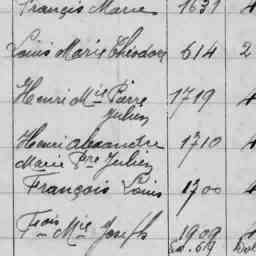 François Marie 1631 4
Louis Marie Théodore 614 2
Henri Mie Pierre 1719 4
Julien
Henri Alexandre 1710 4
Marie Pre Julien
François Louis 1700 4
Fois Mie Joseph 1909 4